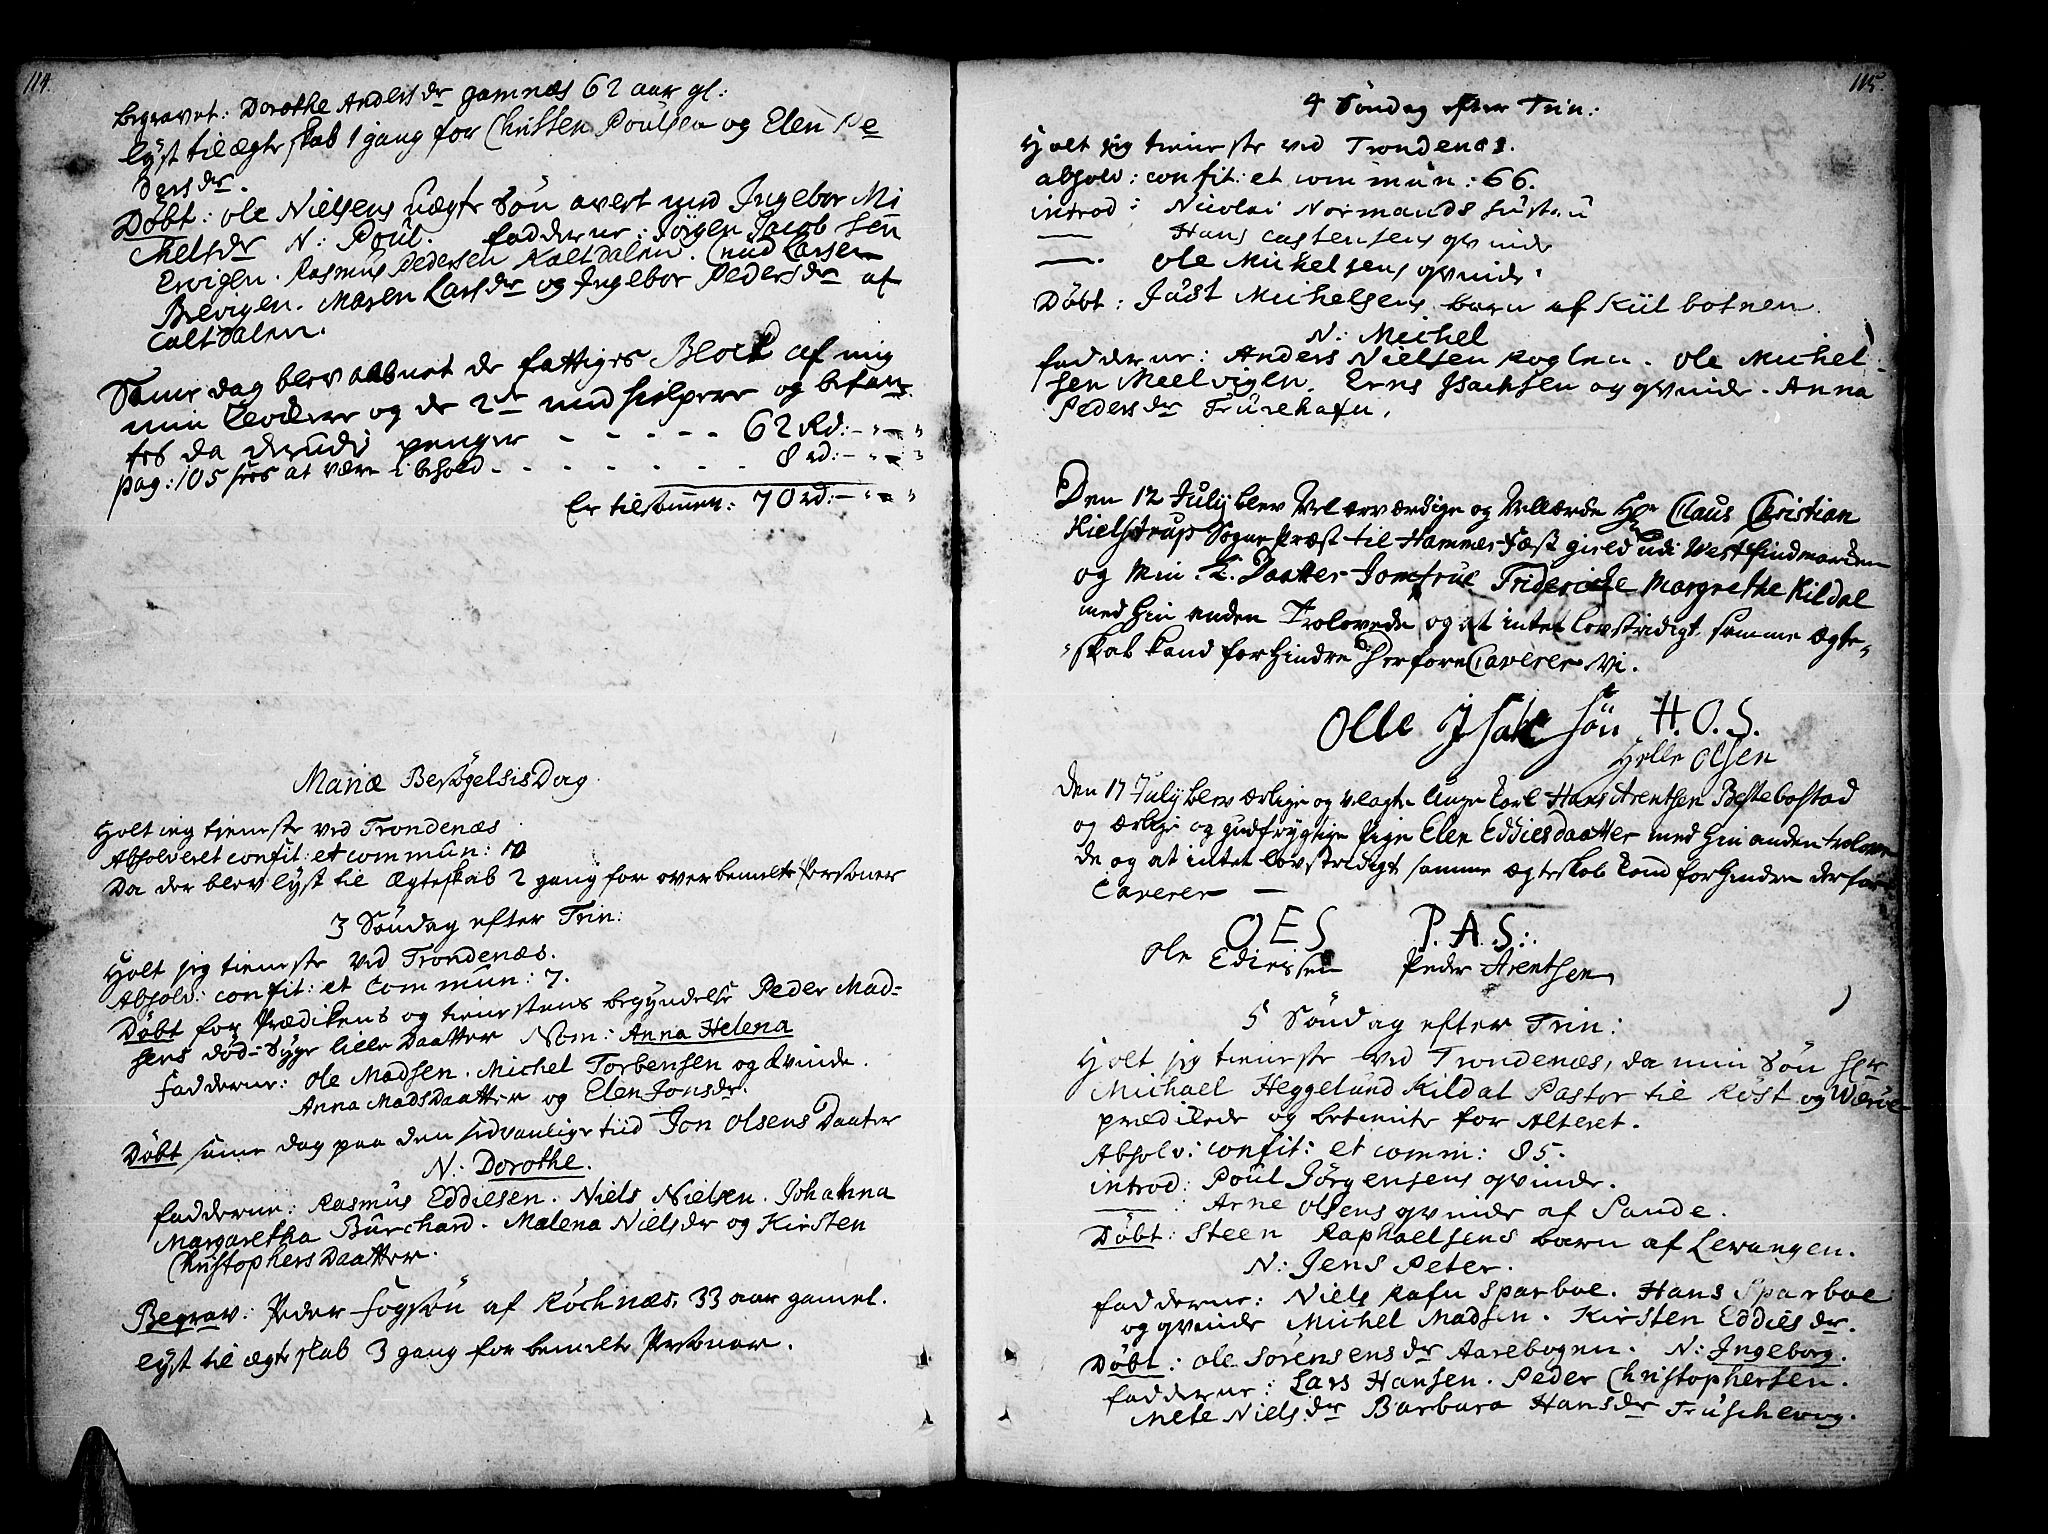 114.
Begravet: Dorothe Andersdr gamnæs 62 aar gl:
lyst til ægteskab 1 gang for Christen Poulsen og Elen Pe
dersdr.
Døbt: ole Nielsens uægte Søn avert med Ingebor Mi
chelsdr N: Poul. fadderne: Jørgen Jacobsen
Ervigen. Rasmus Pedersen Kaltdalen. Cnud Larsen
Brevigen. Maren Larsdr og Ingebor Pedersdr af
Caltdalen.
Same dag blev aabnet de fattiges Block af mig
min Clockere og de 2de medhielpere og befan-
tes da derudi penger - - - - - 62 Rd: - " - "
pag: 105 sees at være i behold - - - - - - - 8 rd: - " - "
Er tilsamen: 70 rd: - " - "
Mariæ Besøgelsis Dag.
Holt ieg tieneste ved Trondenæs
Absolveret confit: et commun:
Da der blev lyst til Ægteskab 2 gang for overbemelte Personer
3 Søndag efter Trin:
Holt jeg tieneste ved Trondenæs.
Absolv: confit: et commun: 7.
Døbt for Prædikens og tienestens begyndelse Peder Mad-
sens død-syge lille Daatter Nom: Anna Helena
Fadderne: Ole Madsen. Michel Torbensen og Kvinde.
Anna MadsDaatter og Elen Jonsdr.
Døbt same dag paa den sedvanlige tiid Jon Olsens Daater
N: Dorothe.
fadderne: Rasmus Eddiesen. Niels Nielsen. Johanna
Margaretha Burchard. Malena Nielsdr og Kirsten
ChristophersDaatter.
Begrav: Peder Fogsøn af Röchnæs, 33 aar gamel.
lyst til ægteskab 3 gang for bemelte Personer.
115.
4 Søndag efter Trin:
Holt jeg tieneste ved Trondenæs.
absolv: confit: et commun: 66.
introd: Nicolai Normands hustru
— Hans Castensens qvinde
—. Ole Michelsens qvinde.
Døbt: Just Michelsens barn af Kiilbotnen.
N: Michel
fadderne: Anders Nielsen Roglen. Ole Michel-
sen Meelvigen. Erns Isachsen og qvinde. Anna
Pedersdr
Den 12 July blev Velærværdige og Vellærde Hr Claus Christian
Kielstrup Sogne Præst til Hammerfæst gield udi Westfindmarcken
og Min K. Daatter Jomfrue Frideriche Margrethe Kildal
med hin anden Trolovede og at intet lovstridigt samme Ægte-
skab kand forhindre derfore Caverer Vi.
Olle Isakssøn H.O.S.
Helle Olsen
Den 17 July blev ærlige og velagte Unge Karl Hans Arentsen Bestebostad
og ærlige og gudfrygtige Pige Elen Eddiesdaatter med hin anden trolove
de og at intet lovstridigt samme ægteskab kand forhindre derfor
Caverer —
OES P.A.S:.
Ole Ediessen Peder Arentsen
5 Søndag efter Trin:
Holt jeg tieneste ved Trondenæs, da min Søn Hr
Michael Heggelund Kildal Pastor til Røst og Wærøe
prædikede og betiente for Alteret.
Absolv: confit: et comm: 85.
introd: Poul Jörgensens qvinde.
—: Arne Olsens qvinde af Sande.
Døbt: Steen Raphaelsens barn af Levangen.
N: Jens Peter.
fadderne: Niels Rafn Sparboe. Hans Sparboe
og qvinde Michel Madsen. Kirsten Eddiesdr.
Døbt: Ole Sörensens dr Aarebogen. N: Ingeborg.
fadderne: Lars Hansen. Peder Christophersen.
Mete Nielsdr Barbara Hansdr